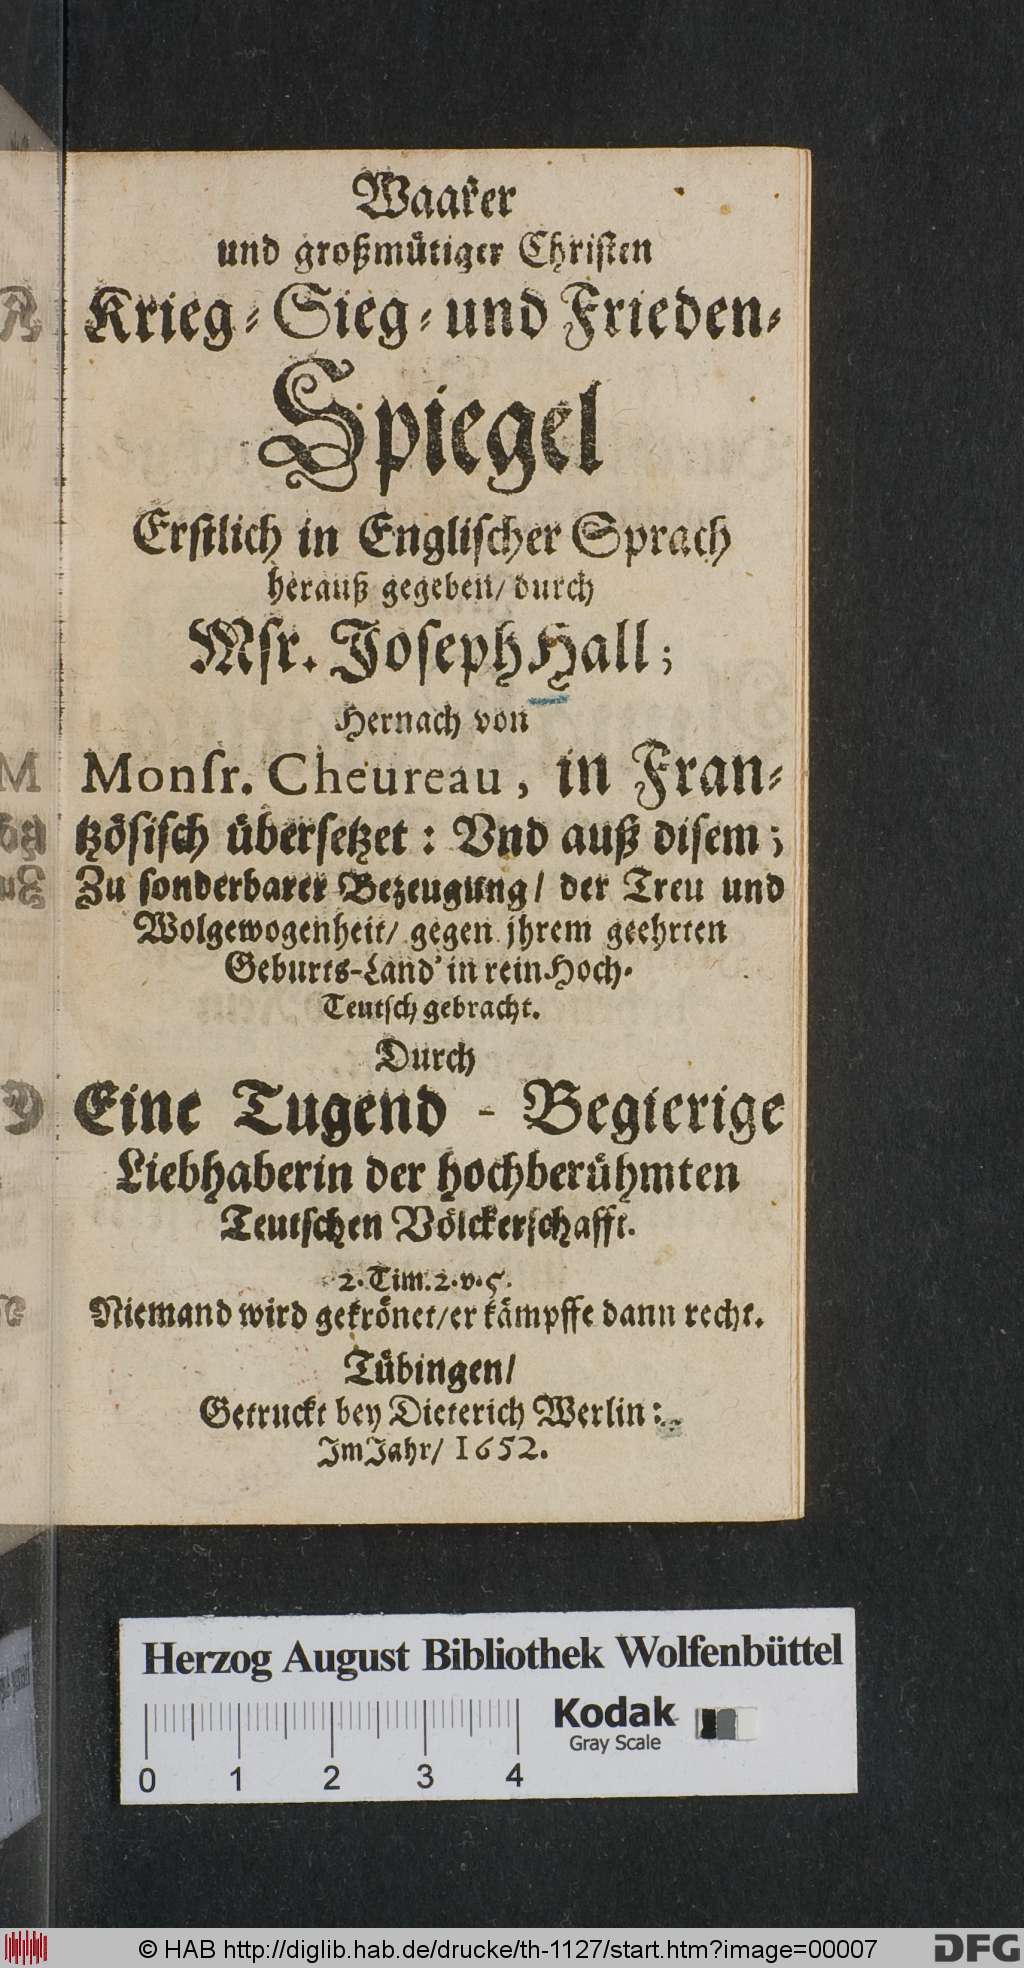 Waaker
und großmütiger Christen
Krieg- Sieg- und Frieden-
Spiegel
Erstlich in Englischer Sprach
herauß gegeben/ durch
Msr. Joseph Hall;
Hernach von
Monsr. Cheureau, in Fran-
tzösisch übersetzet: Vnd auß disem;
Zu sonderbarer Bezeugung/ der Treu und
Wolgewogenheit/ gegen jhrem geehrten
Geburts-Land' in rein Hoch-
Teutsch gebracht.
Durch
Eine Tugend - Begierige
Liebhaberin der hochberühmten
Teutschen Völckerschafft.
2. Tim. 2. v. 5.
Niemand wird gekrönet/ er kämpffe dann recht.
Tübingen/
Getruckt bey Dieterich Werlin:
Im Jahr/ 1652.
Herzog August Bibliothek Wolfenbüttel
Kodak
Gray Scale
0 1 2 3 4
© HAB http://diglib.hab.de/drucke/th-1127/start.htm?image=00007
DFG